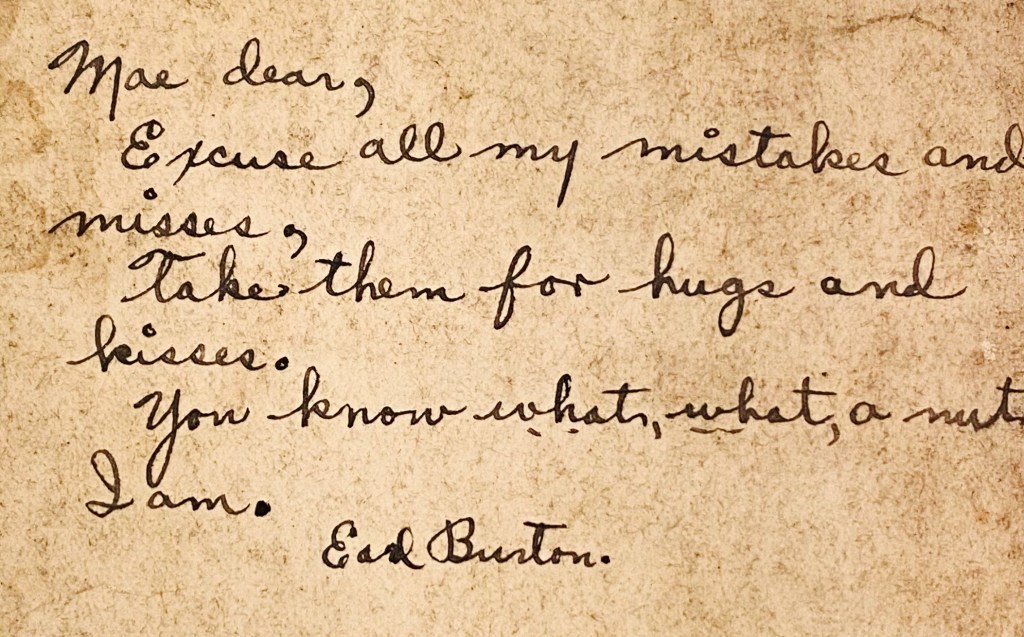 Mae dear,
Excuse all my mistakes and
misses,
Take them for hugs and
kisses.
You know what, what, a nut
I am.
Earl Burton.